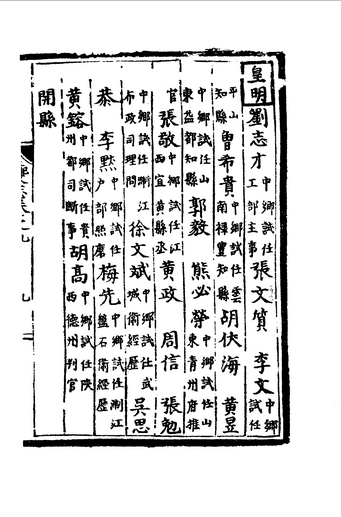 皇明劉志才中鄉試任工部主事張文質 李文中鄉試任
平山知縣曾希貴中鄉試任雲南祿豐知縣胡伏海 黃昱
中鄉試任山東益都知縣郭毅 熊必榮中鄉試任山東青州府推
官張敬中鄉試任江西宜黃縣丞黃政 周信 張勉
中鄉試任浙江布政司理問徐文斌中鄉試任武城衛經歷吳思
恭 李黙戶部照磨梅先中鄉試任浙江盤石衛經歷
黃鎔中鄉試任貴州都司斷事胡高中鄉試任陝西德州判官
開縣